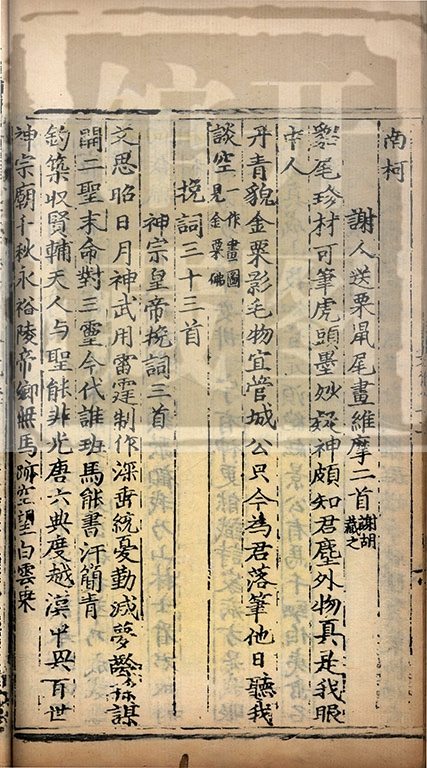 南柯
謝人送栗鼠尾畫維摩二首謝胡藏之
貂尾珍材可筆虎頭墨妙疑神頗知君塵外物真是我眼
中人
丹青貌金粟影毛物宜管城公只今為君落筆他日聽我
談空一作畫圖見金粟佛
挽詞三十三首
神宗皇帝挽詞三首
文思昭日月神武用雷霆制作深垂統憂勤減夢齡孫謀
開二聖末命對三靈今代誰班馬能書汗簡青
釣築収賢輔天人与聖能輝光唐六典度越漢中興百世
神宗廟千秋永裕陵帝鄉無馬跡空望白雲乗